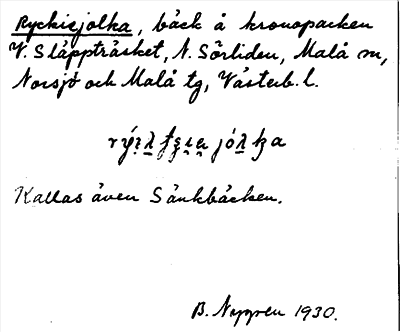 Ryckiejolka, bäck å kronoparken
V. Släppträsket, N. Sörliden, Malå sn,
Norsjö och Malå tg, Västerb. l.
jól̠ka
Kallas även Sänkbäcken.
B. Nygren 1930.